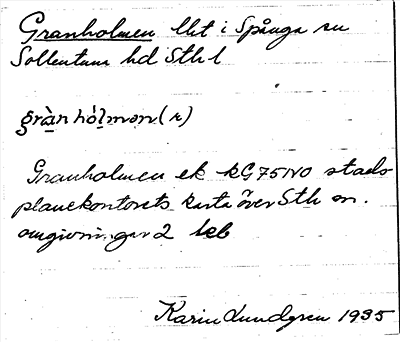 Granholmen lht i Spånga sn
Sollentuna hd Sthl
gràn hól̥mən(r)
Granholmen ek kG75NO stads
planekontorets karta över Sth m.
omgivningar 2 leb
Karin Lundgren 1935